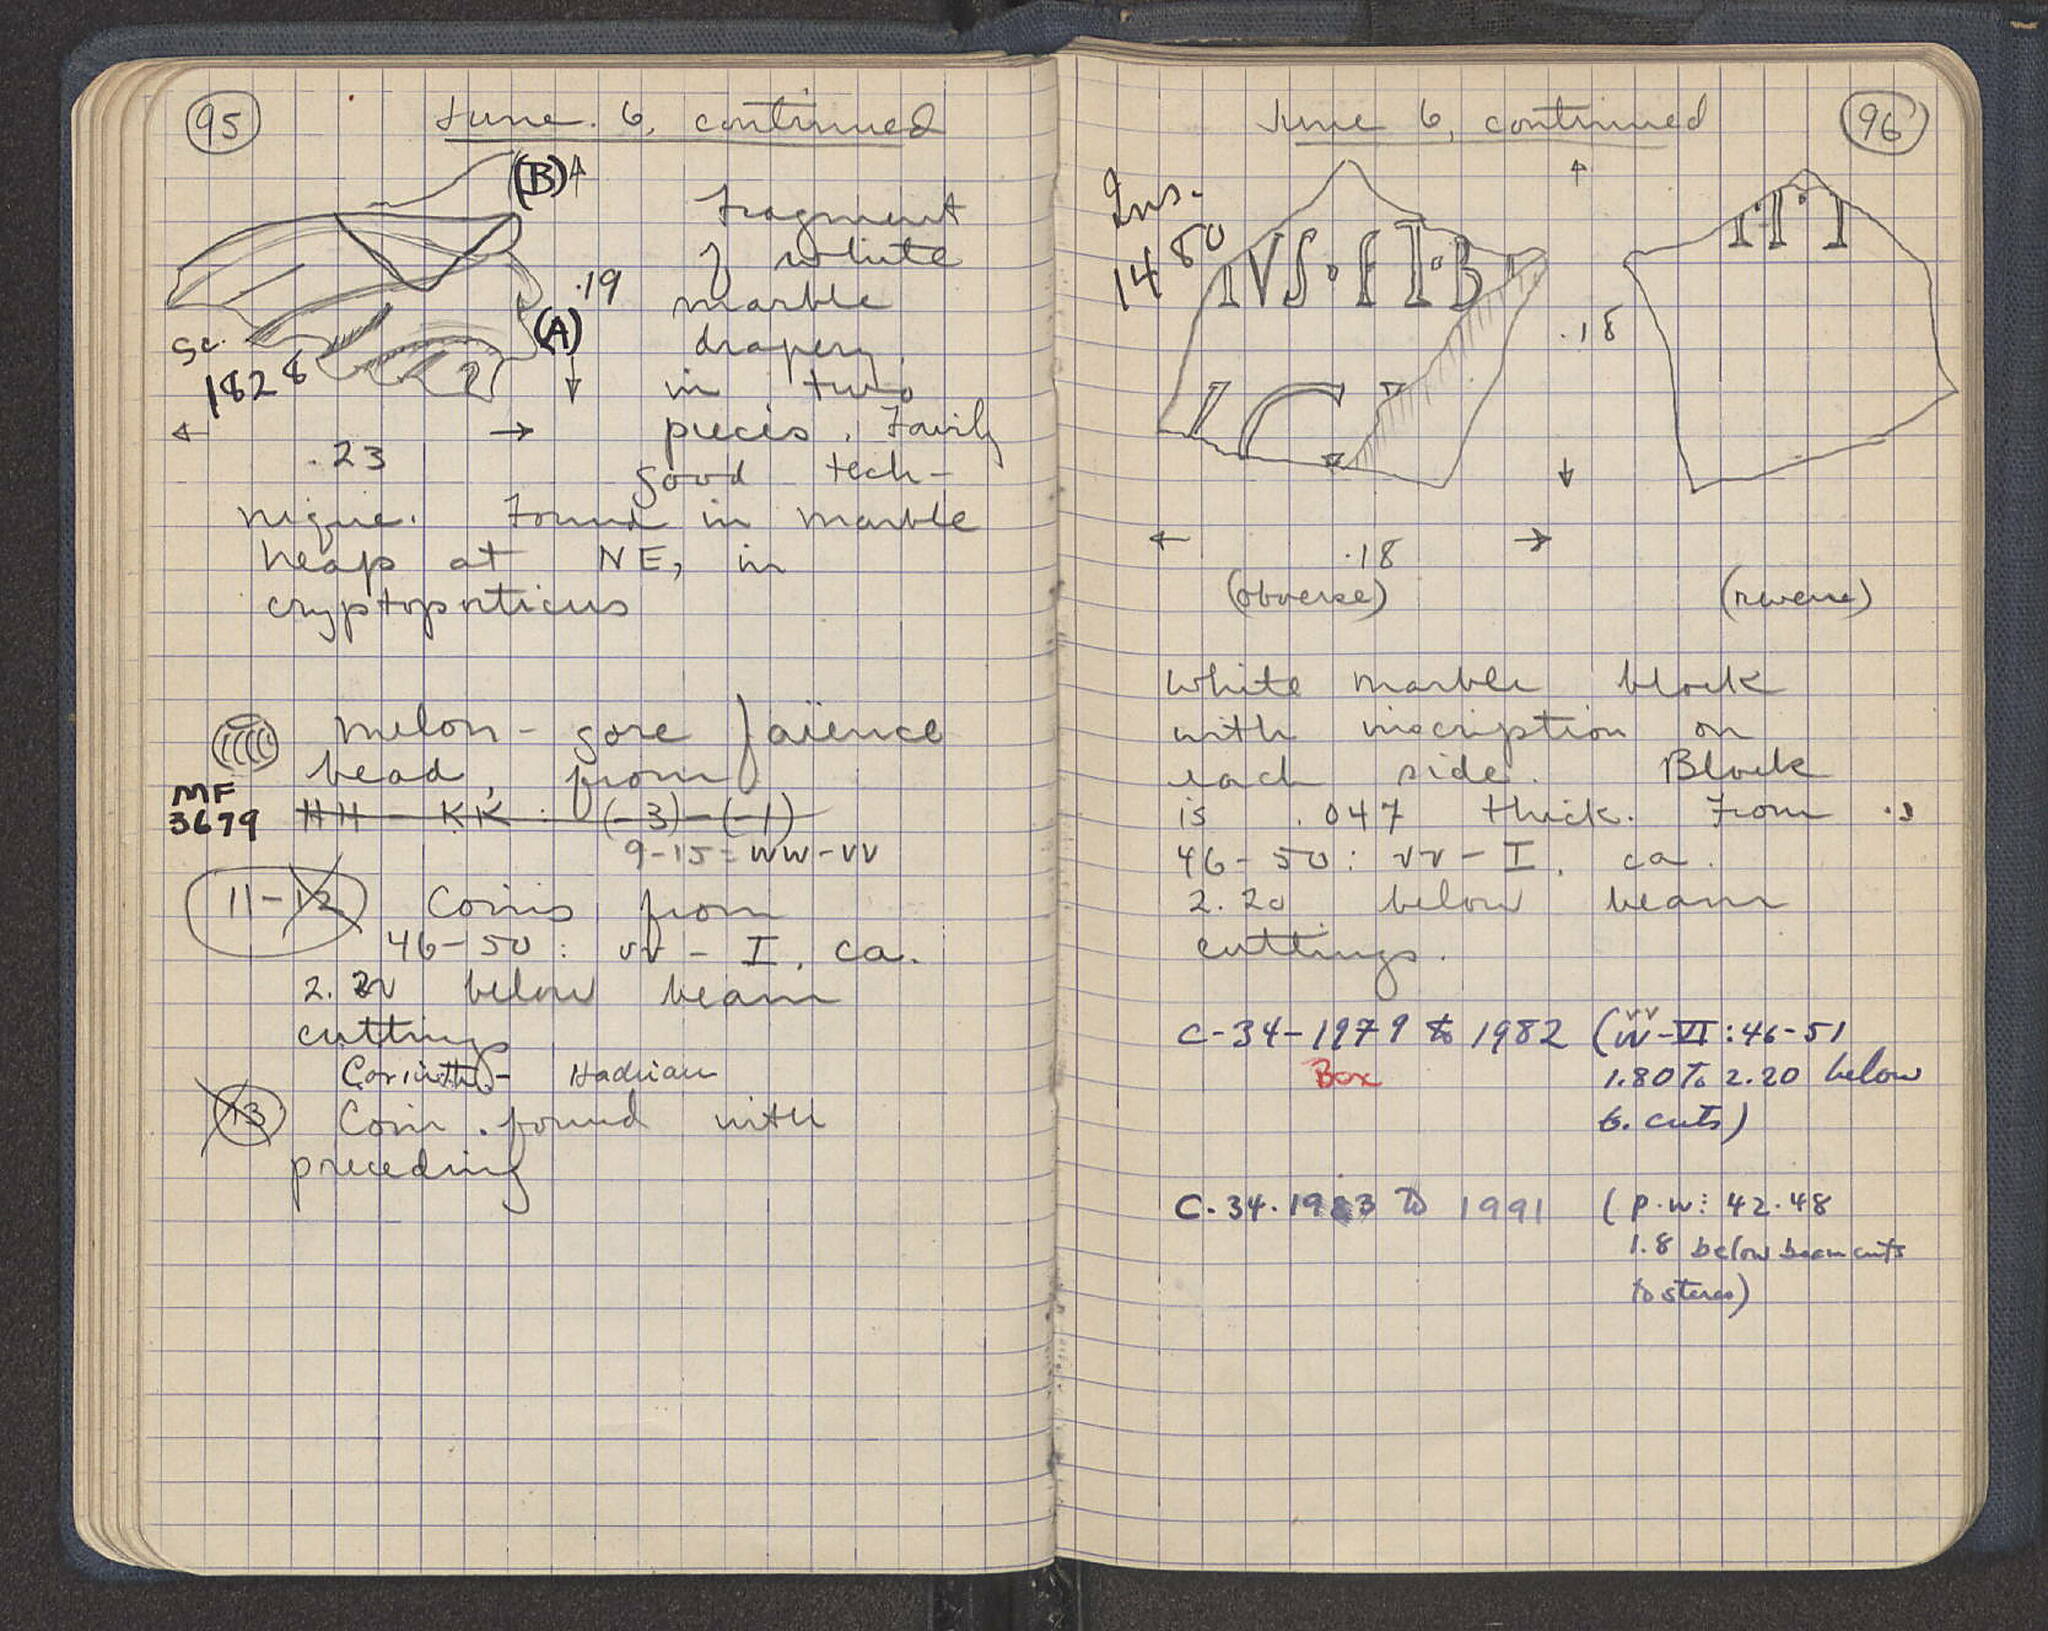 95
June 6, continued
(B)
Fragment
of white
.19
marble
(A)
drapery,
Sc.
1828
in two
pieces. Fairly
.23
good tech-
nique. Found in marble
heap at NE, in
cryptoporticus
melon-gore faïence
bead, from
MF
3679
HH - KK : (-3)-(-1)
9-15 = WW-VV
11-12
Coins from
46-50: VV - I. ca.
2.20 below beam
cuttings
Corinth - Hadrian
13
Coin found with
preceding
June 6, continued
96
Ins.
1480
IVS·FI·B
.18
.18
(obverse)
(reverse)
White marble block
with inscription on
each side. Block
is .047 thick. From
46-50: VV - I. ca.
2.20 below beam
cuttings.
C-34-1979 to 1982 (VV-VI:46-51
Box
1.80 To 2.20 below
b. cuts)
C.34.1983 to 1991 (P.W: 42.48
1.8 below beam cuts
to steres)